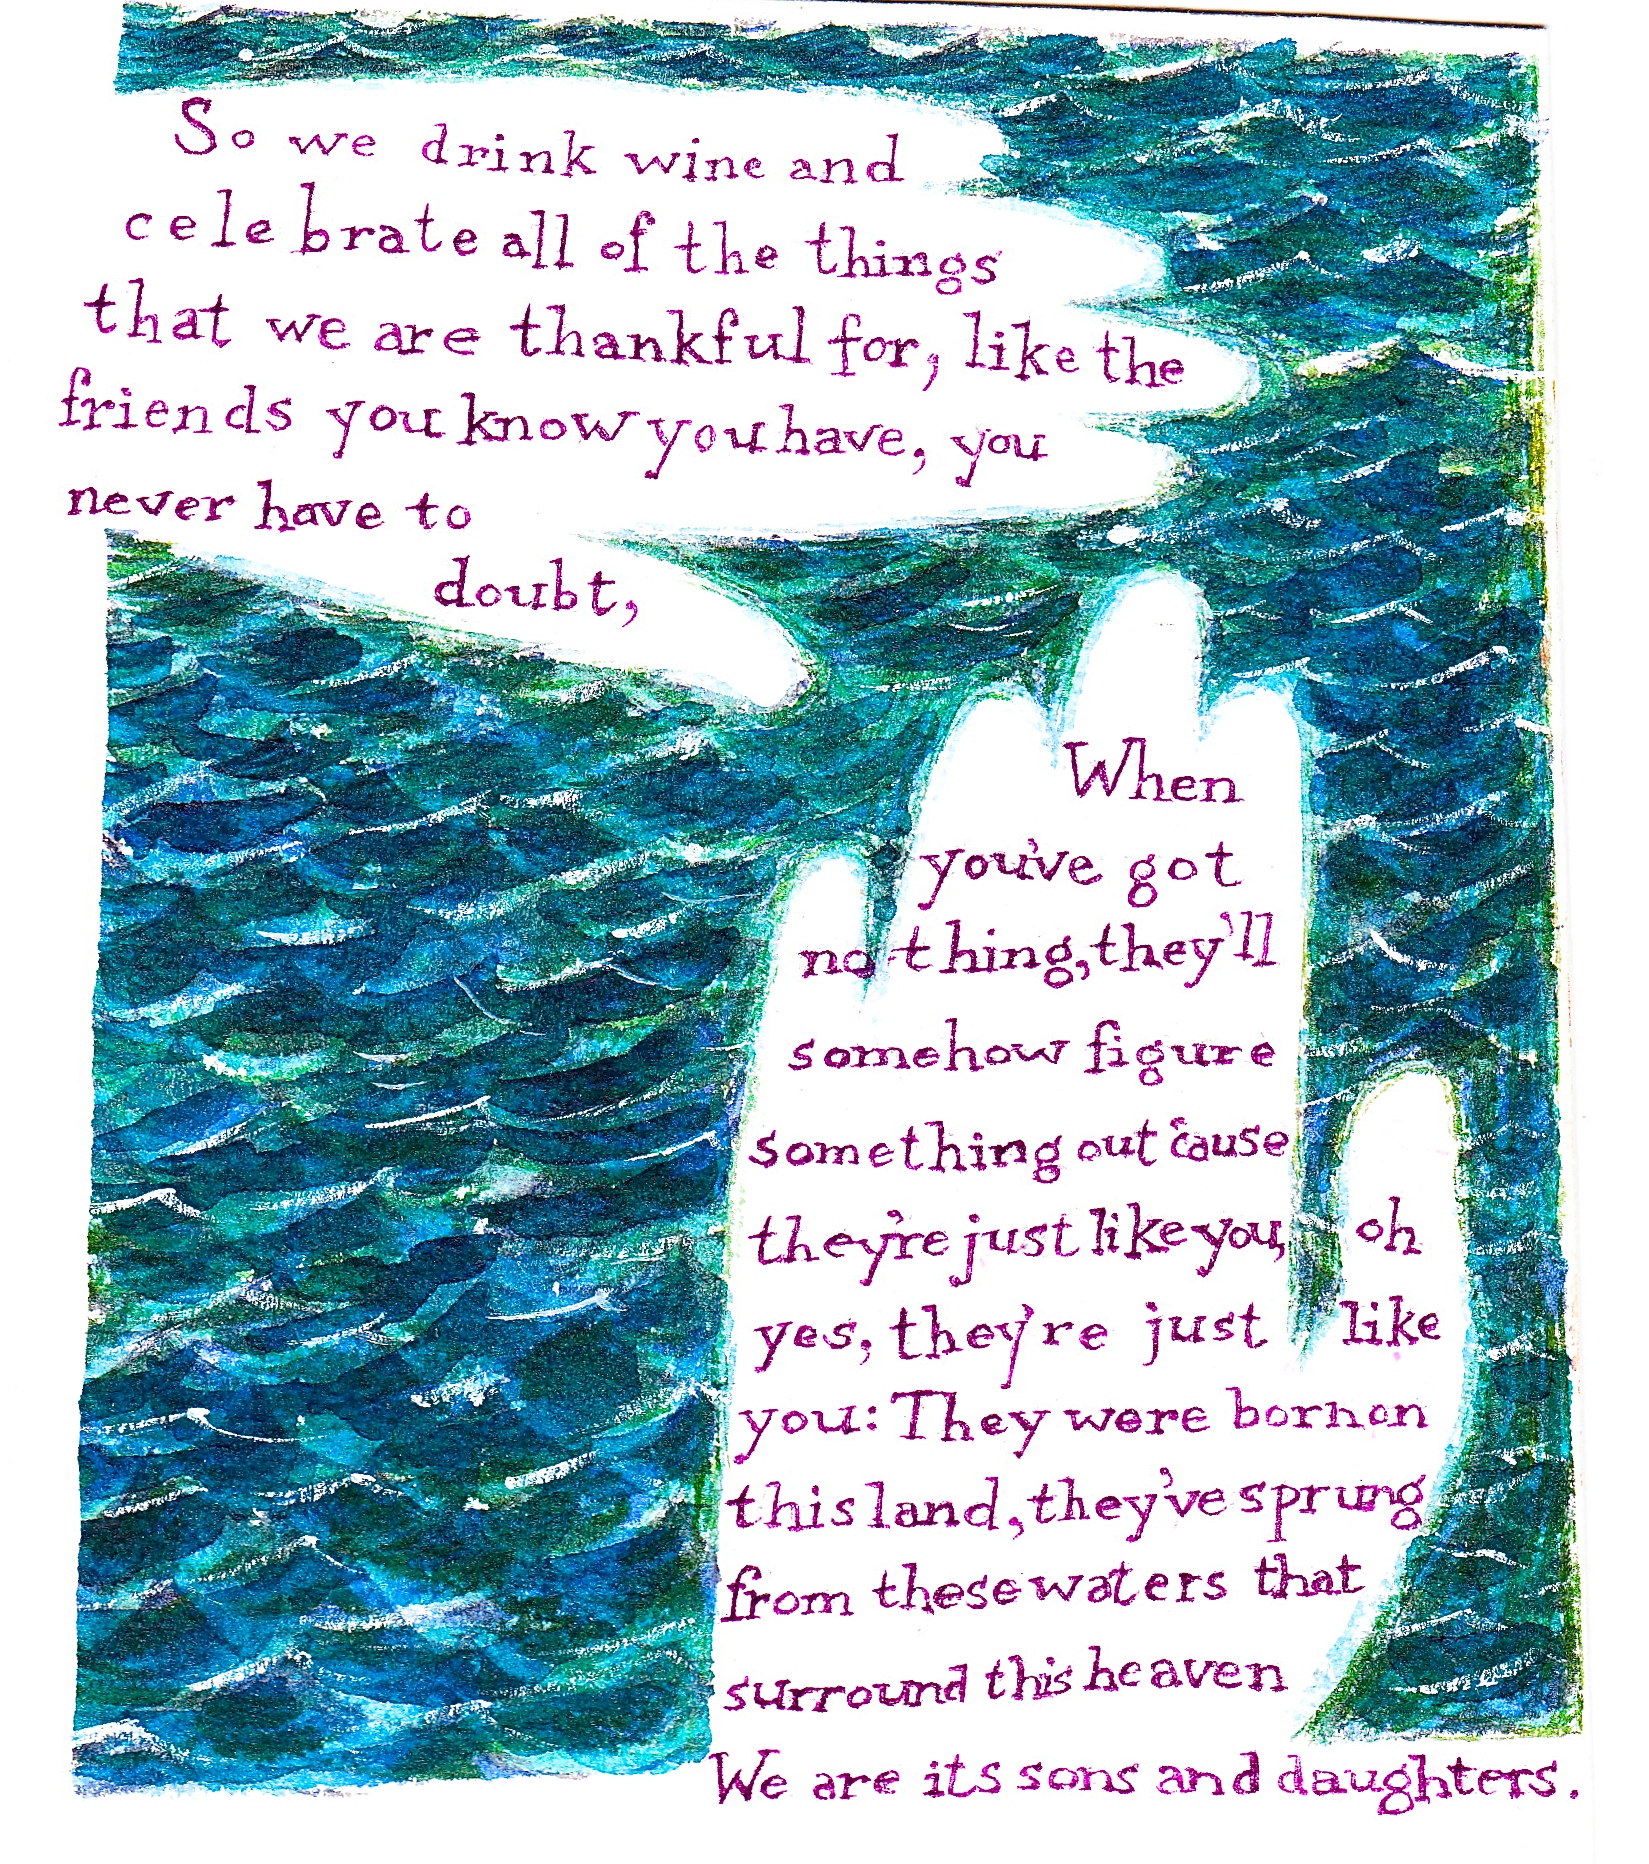 So we drink wine and
celebrate all of the things
that we are thankful for, like the
friends you know you have, you
never have to
doubt,
When
you've got
nothing, they'll
somehow figure
something out 'cause
they're just like you, oh
yes, they're just like
you: They were born on
this land, they've sprung
from these waters that
surround this heaven
We are its sons and daughters.